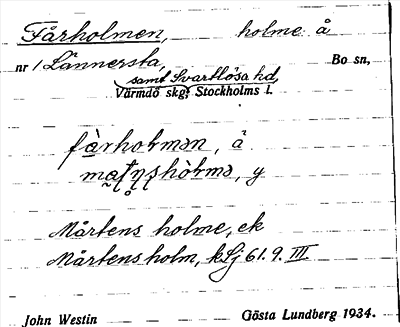 Fårholmen, holme å
nr 1 Lännersta, Bo sn,
samt Svartlösa hd,
Värmdö skg, Stockholms l.
fàrhoƚmən, å
hòƚmə, y
Mårtens holme, ek
Mårtensholm, kfj 61. 9. III
John Westin Gösta Lundberg 1934.